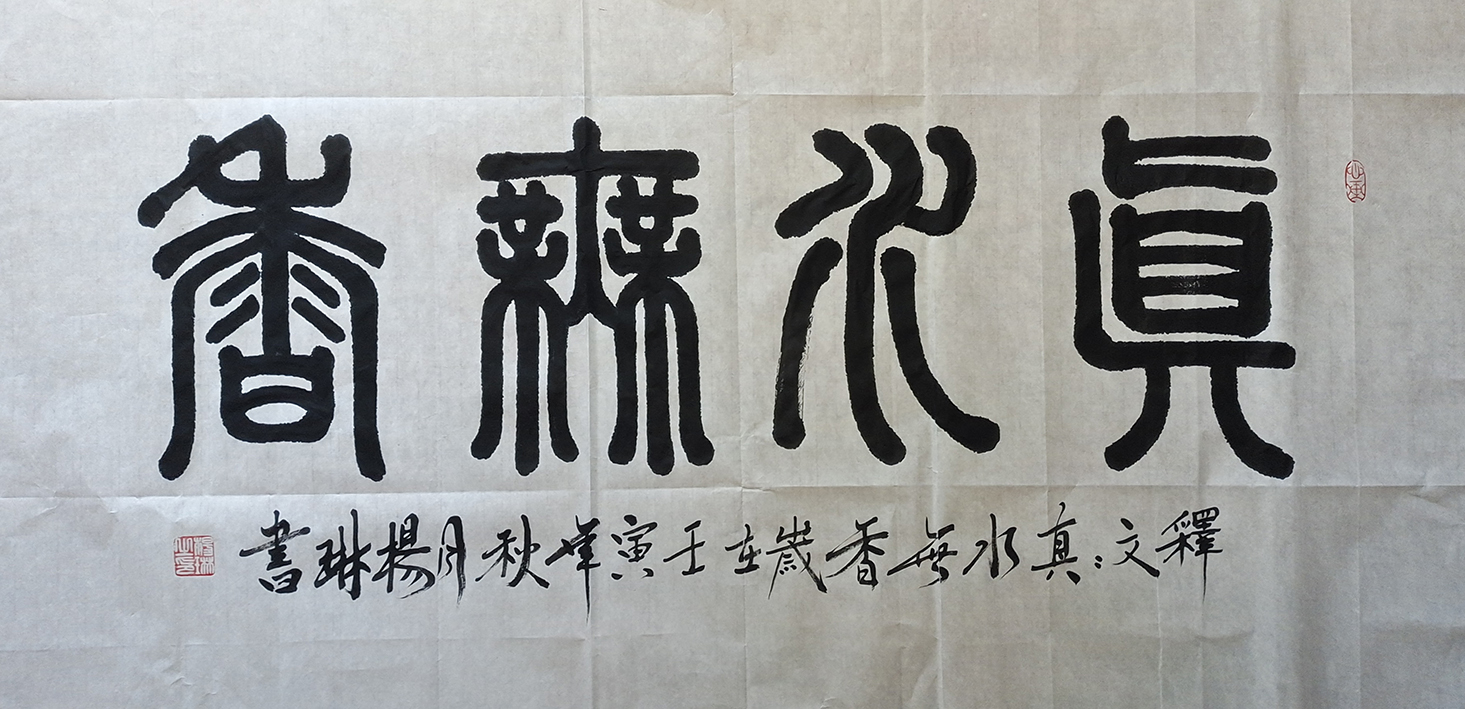 真水無香
釋文：真水無香歲在壬寅年秋月楊琳書